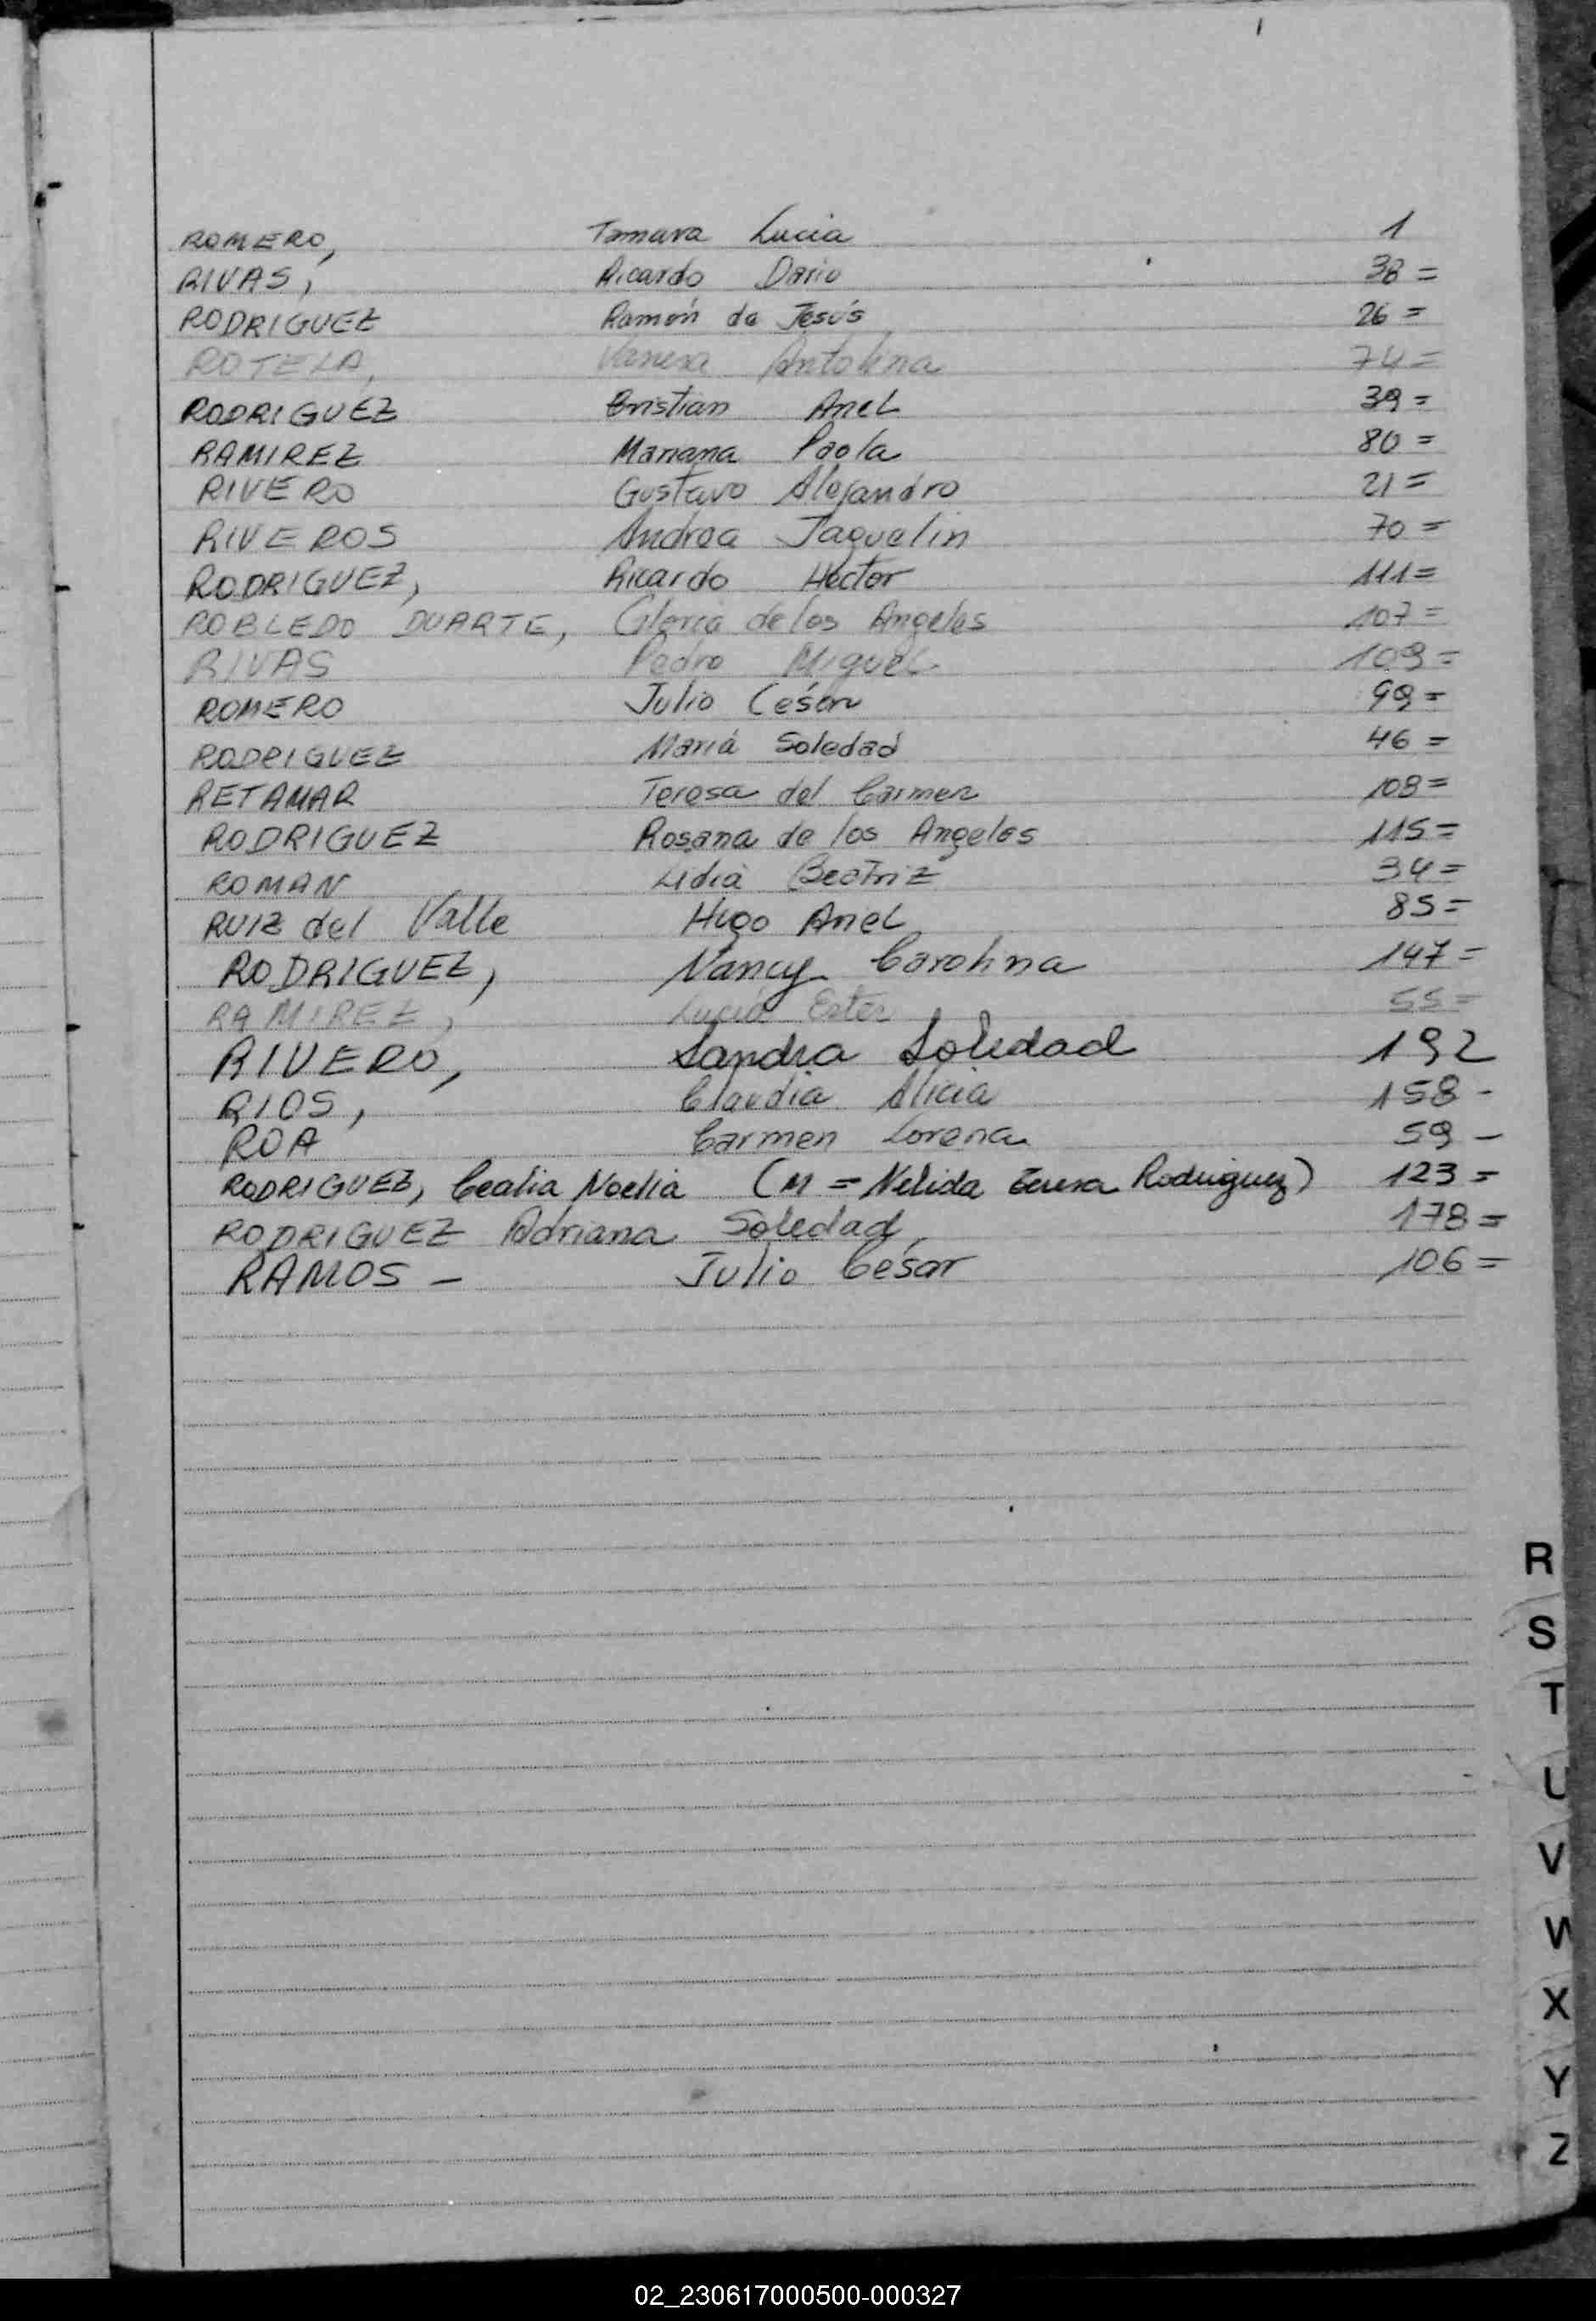 ROMERO, Tamara Lucia 1
RIVAS, Ricardo Dario 38=
RODRIGUEZ Ramón de Jesús 26=
ROTELA, Vanesa Antolina 74=
RODRIGUEZ Cristian Ariel 39=
RAMIREZ Mariana Paola 80=
RIVERO Gustavo Alejandro 21=
RIVEROS Andrea Jaquelin 70=
RODRIGUEZ, Ricardo Hector 111=
ROBLEDO DUARTE, Gloria de los Angeles 107=
RIVAS Pedro Miguel 109=
ROMERO Julio César 99=
RODRIGUEZ Mariá Soledad 46=
RETAMAR Teresa del Carmen 108=
RODRIGUEZ Rosana de los Angeles 115=
ROMAN Lidia Beatriz 34=
RUIZ del Valle Hugo Ariel 85=
RODRIGUEZ, Nancy Carolina 147=
RAMIREZ, Lucia Ester 55=
RIVERO, Sandra Soledad 192
RIOS, Claudia Alicia 158-
ROA Carmen Lorena 59-
RODRIGUEZ, Noelia (M = Nelida Teresa Rodriguez) 123=
RODRIGUEZ Adriana Soledad, 178=
RAMOS - Julio César 106=
R
S
T
U
V
W
X
Y
Z
02_230617000500-000327